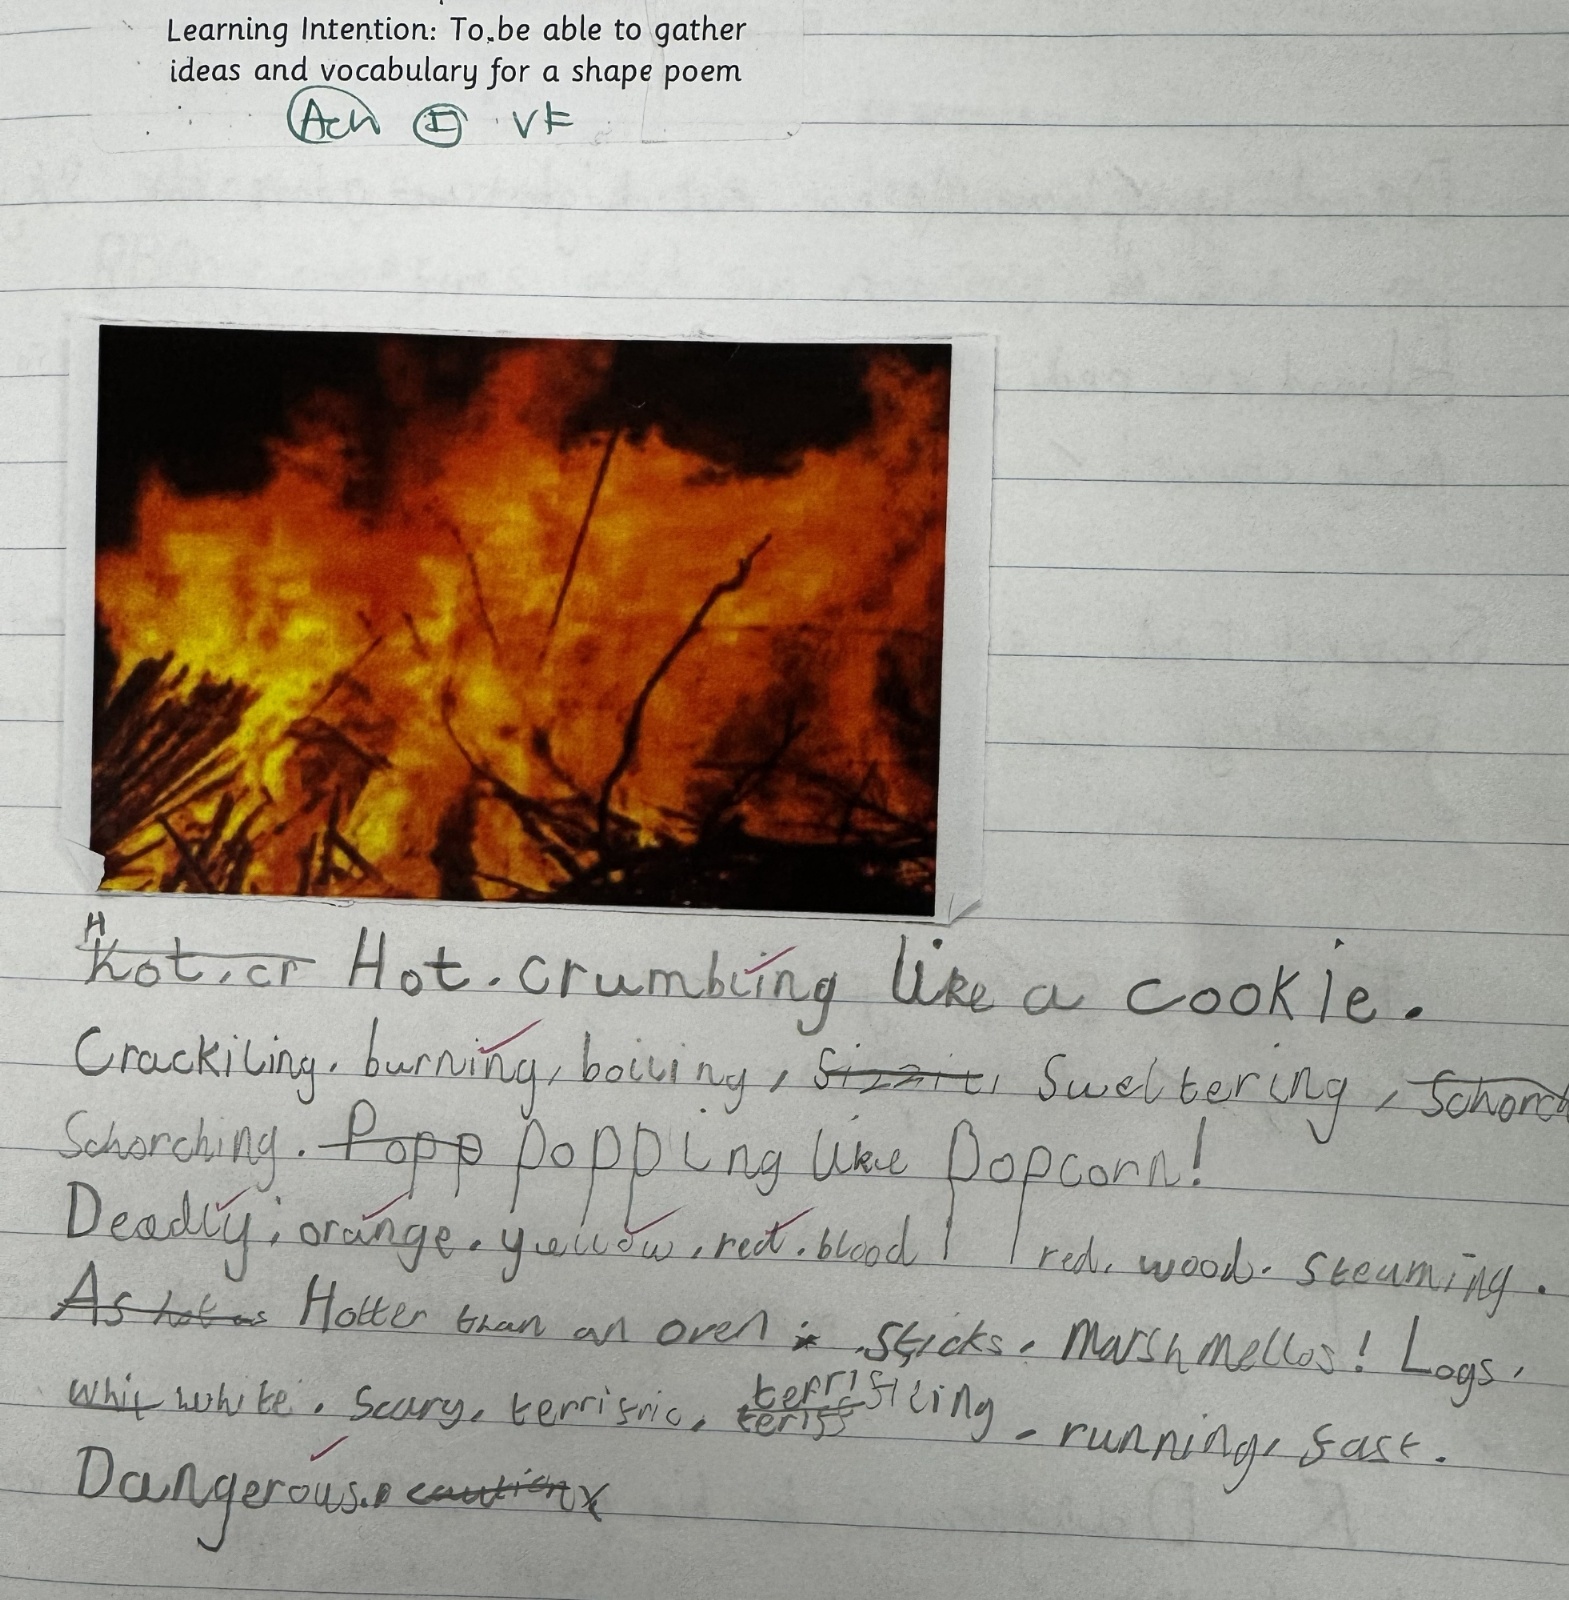 Learning Intention: To be able to gather
ideas and vocabulary for a shape poem
Ach I VF
H
Kot. cr Hot. crumbling like a cookie.
Crackiling. burning, boiling, Sizzil, Sweltering, Schorch
Schorching. Popp popping like popcorn!
Deadly. orange. yellow. red. blood red. wood. steaming.
As hot as Hotter than an oven. Sticks. Marshmellos! Logs.
whit white. Scary. terrisric. teriff terrifiling. running, fast.
Dangerous. caution